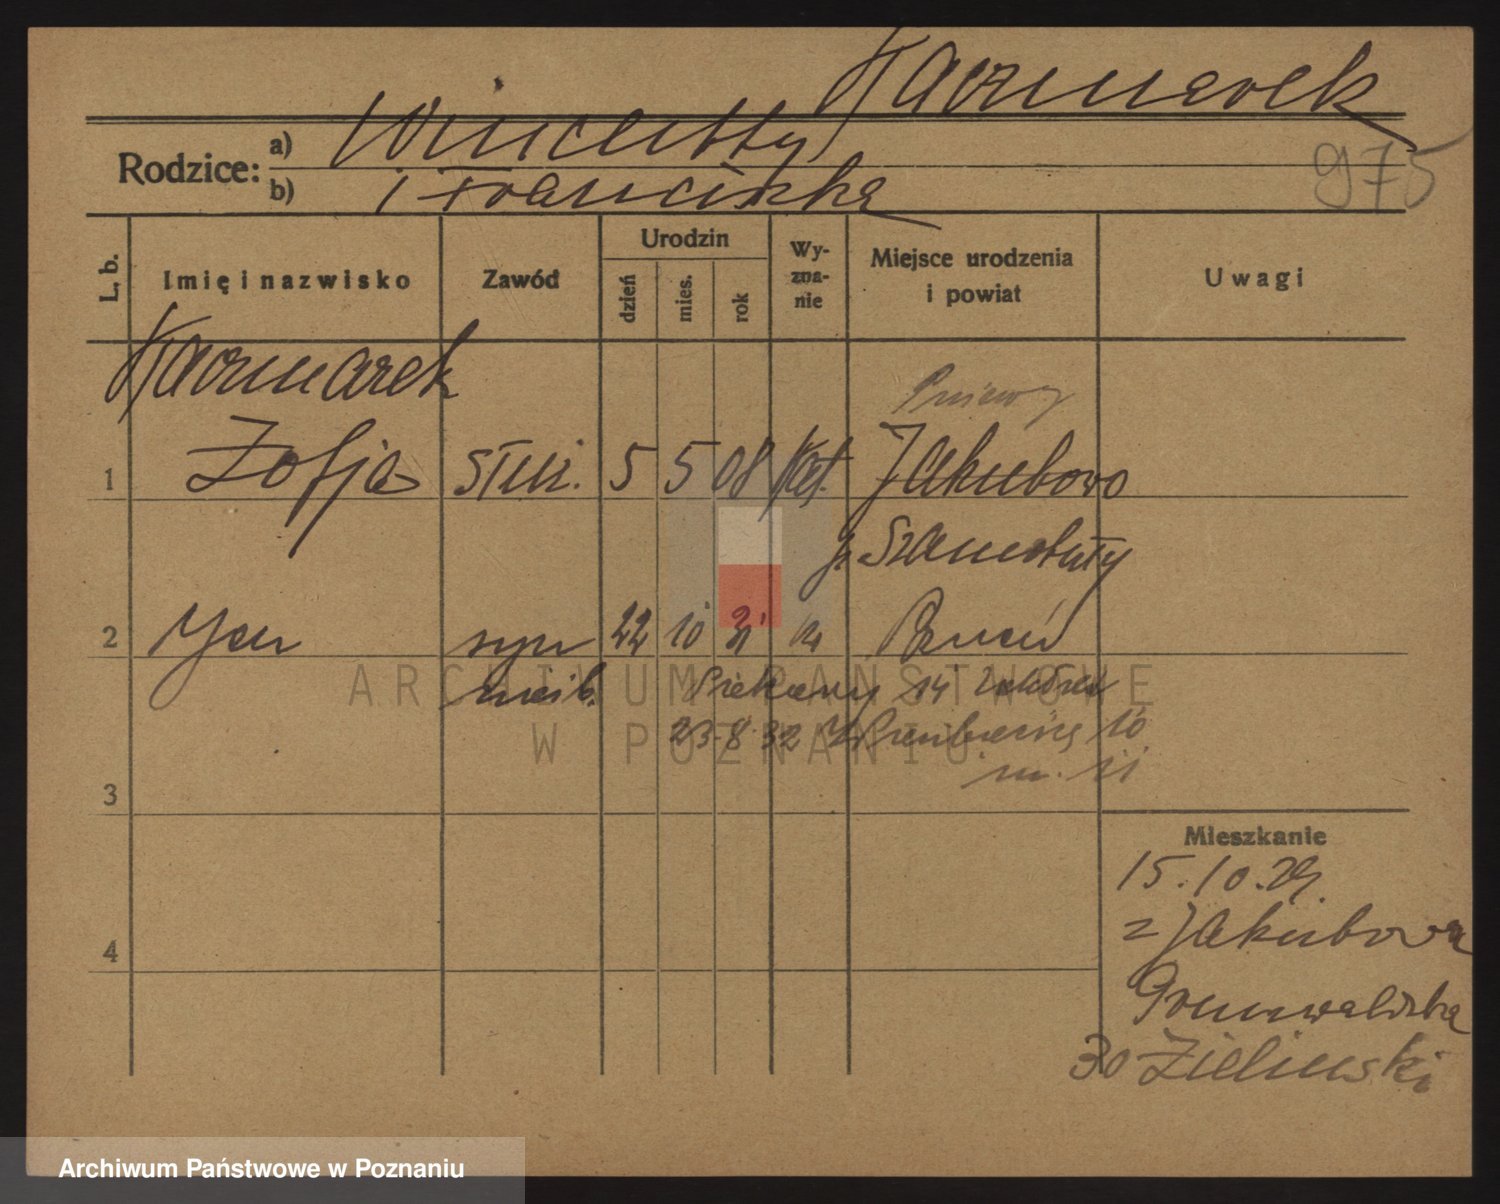 Kaczmarek
Rodzice:
a) Wincenty
b) i Franciszka
975
L. b.
Imię i nazwisko
Zawód
Urodzin
dzień
mies.
rok
Wy-
zna-
nie
Miejsce urodzenia
i powiat
Uwagi
Kaczmarek
Pniewy
1 Zofja służ. 5 5 08 kat. Jakubowo
p. Szamotuły
2 Jan syn 22 10 31 k Poznań
nieśl.
14
23-8 32 10
m. 11
3
Mieszkanie
15.10.29.
z Jakubowa
4
Grunwaldzka
30 Zieliński
ARCHIWUM PAŃSTWOWE
W POZNANIU
Archiwum Państwowe w Poznaniu